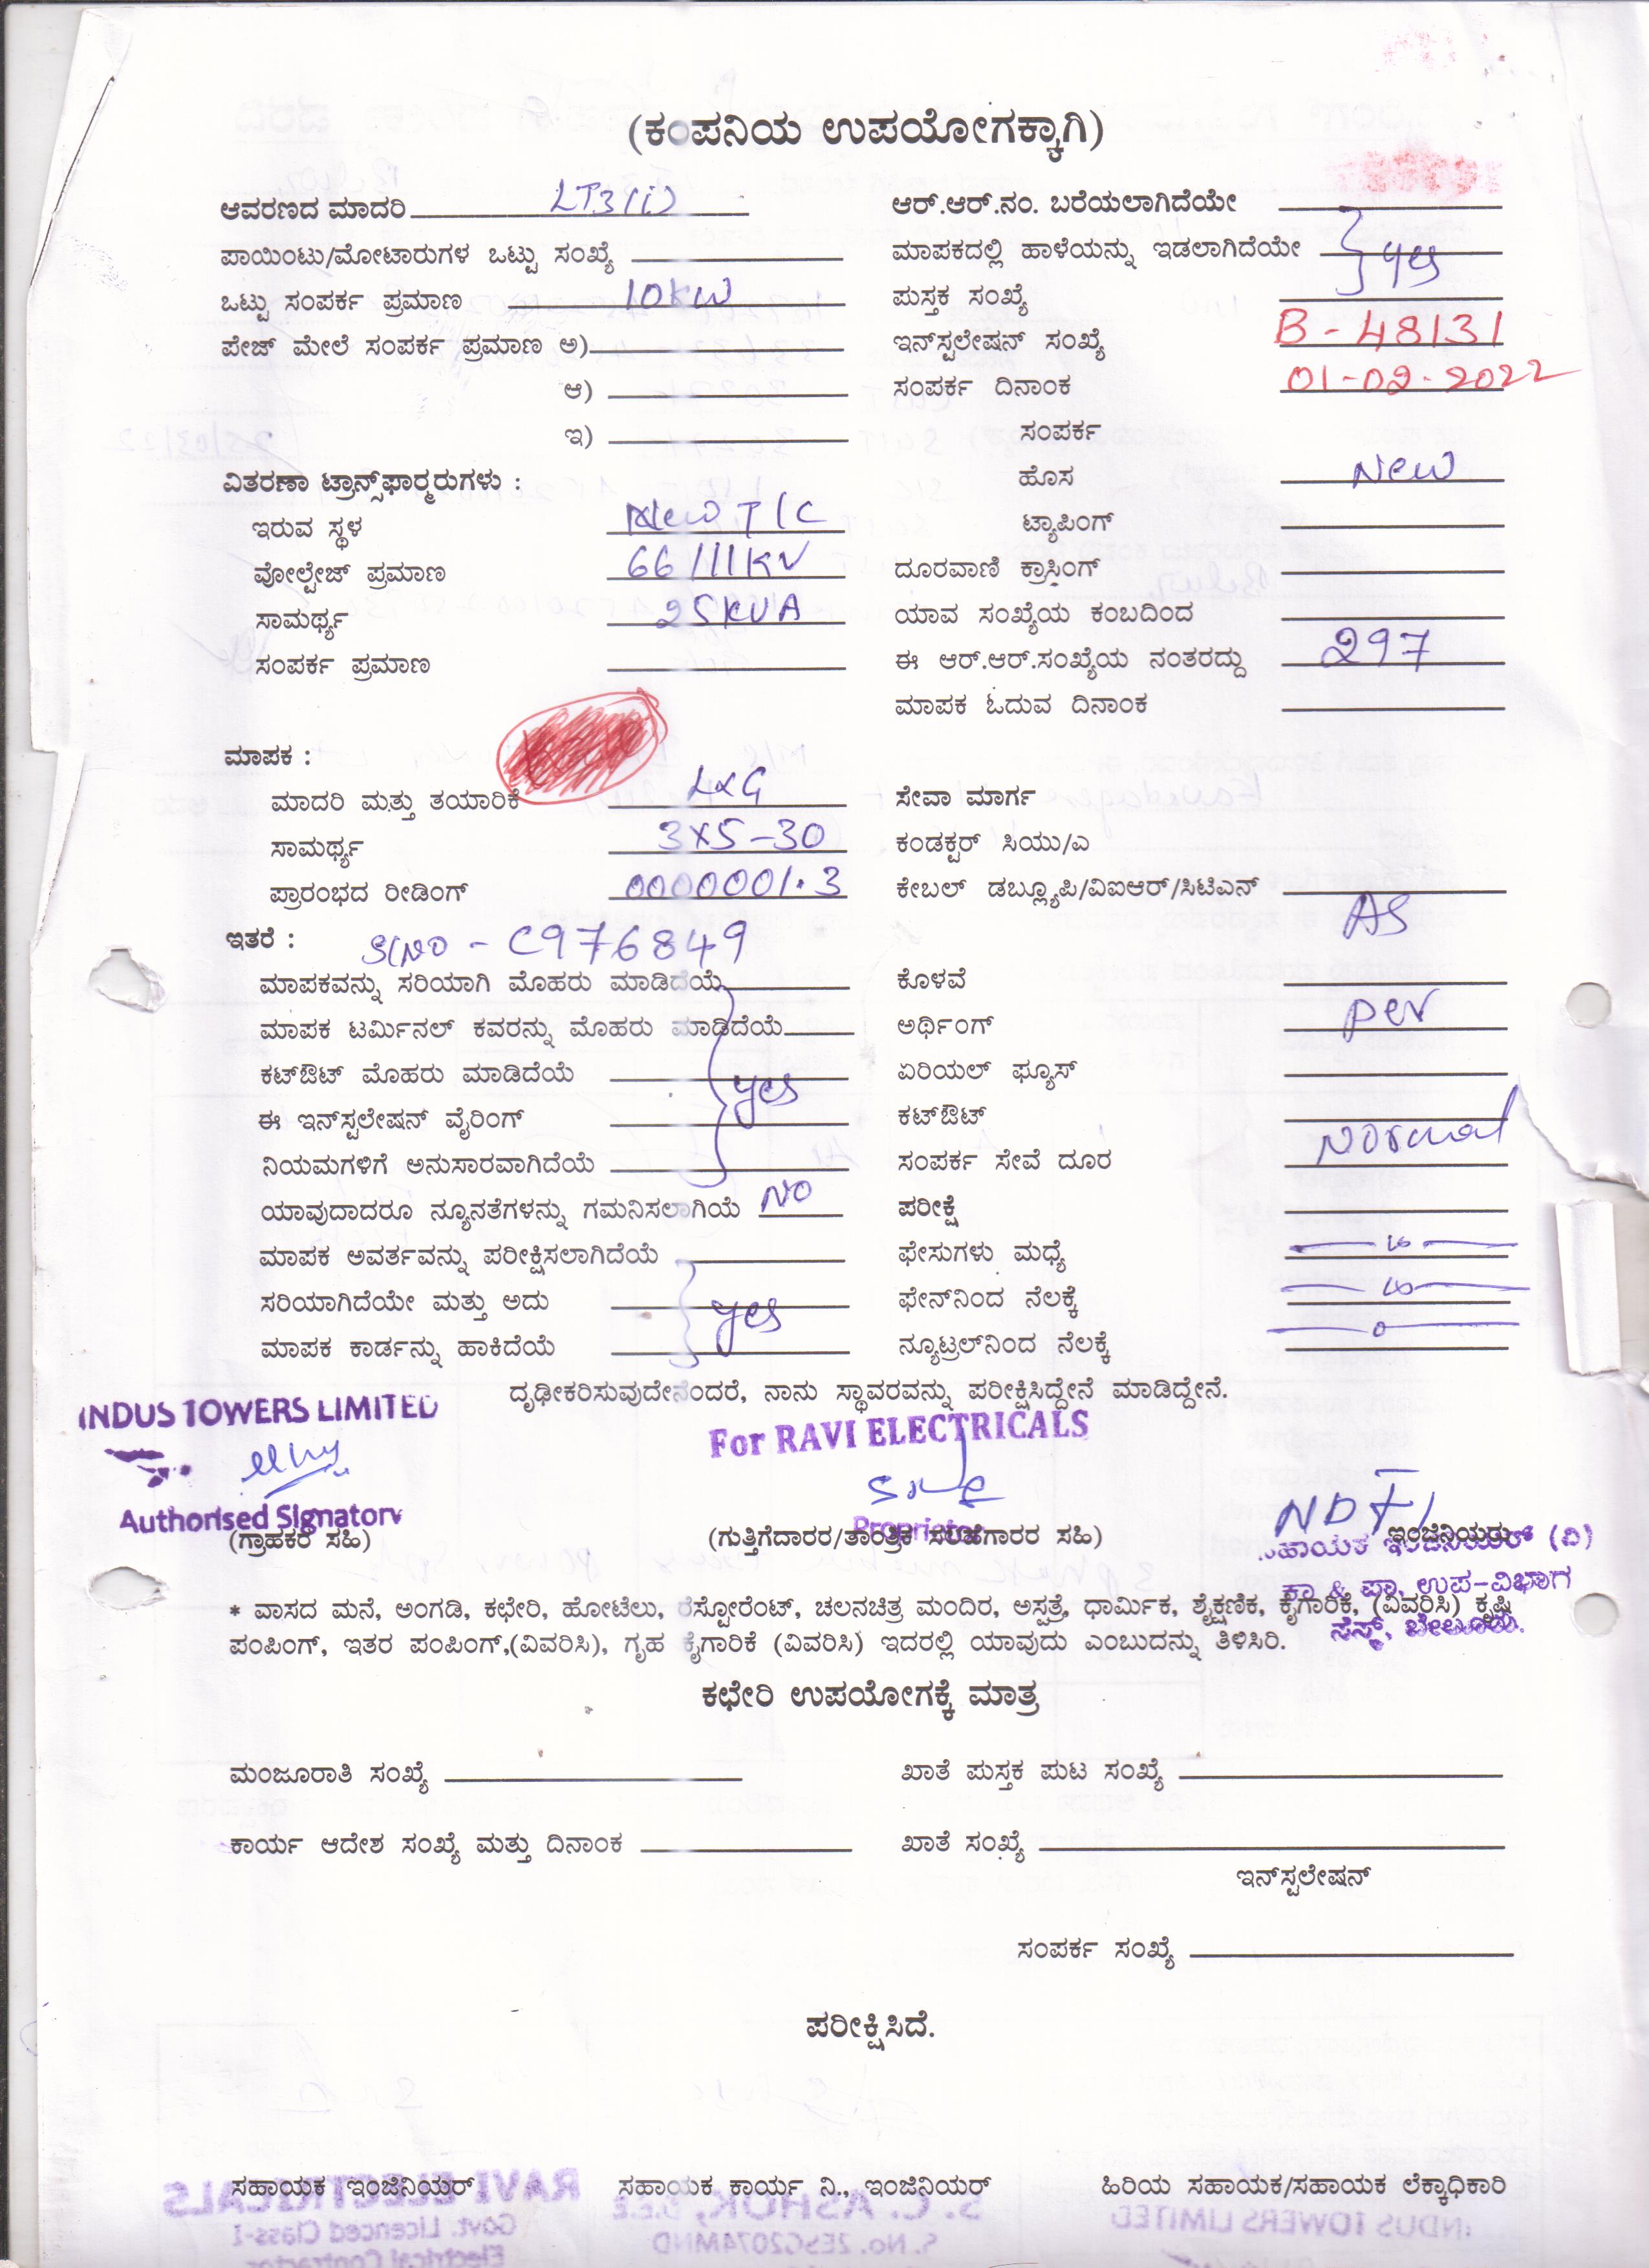 (ಕಂಪನಿಯ ಉಪಯೋಗಕ್ಕಾಗಿ)
ಆವರಣದ ಮಾದರಿ LT3(i) ಆರ್.ಆರ್.ನಂ. ಬರೆಯಲಾಗಿದೆಯೇ
ಪಾಯಿಂಟು/ಮೋಟಾರುಗಳ ಒಟ್ಟು ಸಂಖ್ಯೆ ಮಾಪಕದಲ್ಲಿ ಹಾಳೆಯನ್ನು ಇಡಲಾಗಿದೆಯೇ yes
ಒಟ್ಟು ಸಂಪರ್ಕ ಪ್ರಮಾಣ 10KW ಪುಸ್ತಕ ಸಂಖ್ಯೆ
ಪೇಜ್ ಮೇಲೆ ಸಂಪರ್ಕ ಪ್ರಮಾಣ ಅ) ಇನ್‌ಸ್ಟಲೇಷನ್ ಸಂಖ್ಯೆ B-48131
ಆ) ಸಂಪರ್ಕ ದಿನಾಂಕ 01-02-2022
ಇ) ಸಂಪರ್ಕ
ವಿತರಣಾ ಟ್ರಾನ್ಸ್‌ಫಾರ್ಮರುಗಳು : ಹೊಸ New
ಇರುವ ಸ್ಥಳ New T/C ಟ್ಯಾಪಿಂಗ್
ವೋಲ್ಟೇಜ್ ಪ್ರಮಾಣ 66/11KV ದೂರವಾಣಿ ಕ್ರಾಸಿಂಗ್
ಸಾಮರ್ಥ್ಯ 25KVA ಯಾವ ಸಂಖ್ಯೆಯ ಕಂಬದಿಂದ
ಸಂಪರ್ಕ ಪ್ರಮಾಣ ಈ ಆರ್.ಆರ್.ಸಂಖ್ಯೆಯ ನಂತರದ್ದು 297
ಮಾಪಕ ಓದುವ ದಿನಾಂಕ
ಮಾಪಕ :
ಮಾದರಿ ಮತ್ತು ತಯಾರಿಕೆ L&G ಸೇವಾ ಮಾರ್ಗ
ಸಾಮರ್ಥ್ಯ 3X5-30 ಕಂಡಕ್ಟರ್ ಸಿಯು/ಎ
ಪ್ರಾರಂಭದ ರೀಡಿಂಗ್ 0000001.3 ಕೇಬಲ್ ಡಬ್ಲ್ಯೂಪಿ/ವಿಐಆರ್/ಸಿಟಿಎನ್
ಇತರೆ : Sl No - C976849 AS
ಮಾಪಕವನ್ನು ಸರಿಯಾಗಿ ಮೊಹರು ಮಾಡಿದೆಯೆ ಕೊಳವೆ
ಮಾಪಕ ಟರ್ಮಿನಲ್ ಕವರನ್ನು ಮೊಹರು ಮಾಡಿದೆಯೆ ಅರ್ಥಿಂಗ್ per
ಕಟ್‌ಔಟ್ ಮೊಹರು ಮಾಡಿದೆಯೆ yes ಏರಿಯಲ್ ಫ್ಯೂಸ್
ಈ ಇನ್‌ಸ್ಟಲೇಷನ್ ವೈರಿಂಗ್ ಕಟ್‌ಔಟ್
ನಿಯಮಗಳಿಗೆ ಅನುಸಾರವಾಗಿದೆಯೆ ಸಂಪರ್ಕ ಸೇವೆ ದೂರ Normal
ಯಾವುದಾದರೂ ನ್ಯೂನತೆಗಳನ್ನು ಗಮನಿಸಲಾಗಿಯೆ NO ಪರೀಕ್ಷೆ
ಮಾಪಕ ಅವರ್ತವನ್ನು ಪರೀಕ್ಷಿಸಲಾಗಿದೆಯೆ ಫೇಸುಗಳು ಮಧ್ಯೆ
ಸರಿಯಾಗಿದೆಯೇ ಮತ್ತು ಅದು yes ಫೇನ್‌ನಿಂದ ನೆಲಕ್ಕೆ
ಮಾಪಕ ಕಾರ್ಡನ್ನು ಹಾಕಿದೆಯೆ ನ್ಯೂಟ್ರಲ್‌ನಿಂದ ನೆಲಕ್ಕೆ 0
ದೃಢೀಕರಿಸುವುದೇನೆಂದರೆ, ನಾನು ಸ್ಥಾವರವನ್ನು ಪರೀಕ್ಷಿಸಿದ್ದೇನೆ ಮಾಡಿದ್ದೇನೆ.
INDUS TOWERS LIMITED
For RAVI ELECTRICALS
Authorised Signatory
Proprietor
(ಗ್ರಾಹಕರ ಸಹಿ) (ಗುತ್ತಿಗೆದಾರರ/ತಾಂತ್ರಿಕ ಸಲಹೆಗಾರರ ಸಹಿ) ಇಂಜಿನಿಯರು
ಸಹಾಯಕ ಇಂಜಿನಿಯರ್ (ವಿ)
ಕಾ & ಪಾ, ಉಪ-ವಿಭಾಗ
ಸೆಸ್ಕ್, ಬೇಲೂರು.
* ವಾಸದ ಮನೆ, ಅಂಗಡಿ, ಕಛೇರಿ, ಹೋಟೆಲು, ರೆಸ್ಟೋರೆಂಟ್, ಚಲನಚಿತ್ರ ಮಂದಿರ, ಅಸ್ಪತ್ರೆ, ಧಾರ್ಮಿಕ, ಶೈಕ್ಷಣಿಕ, ಕೈಗಾರಿಕೆ, (ವಿವರಿಸಿ) ಕೃಷಿ
ಪಂಪಿಂಗ್, ಇತರ ಪಂಪಿಂಗ್,(ವಿವರಿಸಿ), ಗೃಹ ಕೈಗಾರಿಕೆ (ವಿವರಿಸಿ) ಇದರಲ್ಲಿ ಯಾವುದು ಎಂಬುದನ್ನು ತಿಳಿಸಿರಿ.
ಕಛೇರಿ ಉಪಯೋಗಕ್ಕೆ ಮಾತ್ರ
ಮಂಜೂರಾತಿ ಸಂಖ್ಯೆ ಖಾತೆ ಪುಸ್ತಕ ಪುಟ ಸಂಖ್ಯೆ
ಕಾರ್ಯ ಆದೇಶ ಸಂಖ್ಯೆ ಮತ್ತು ದಿನಾಂಕ ಖಾತೆ ಸಂಖ್ಯೆ
ಇನ್‌ಸ್ಟಲೇಷನ್
ಸಂಪರ್ಕ ಸಂಖ್ಯೆ
ಪರೀಕ್ಷಿಸಿದೆ.
ಸಹಾಯಕ ಇಂಜಿನಿಯರ್ ಸಹಾಯಕ ಕಾರ್ಯ ನಿ., ಇಂಜಿನಿಯರ್ ಹಿರಿಯ ಸಹಾಯಕ/ಸಹಾಯಕ ಲೆಕ್ಕಾಧಿಕಾರಿ